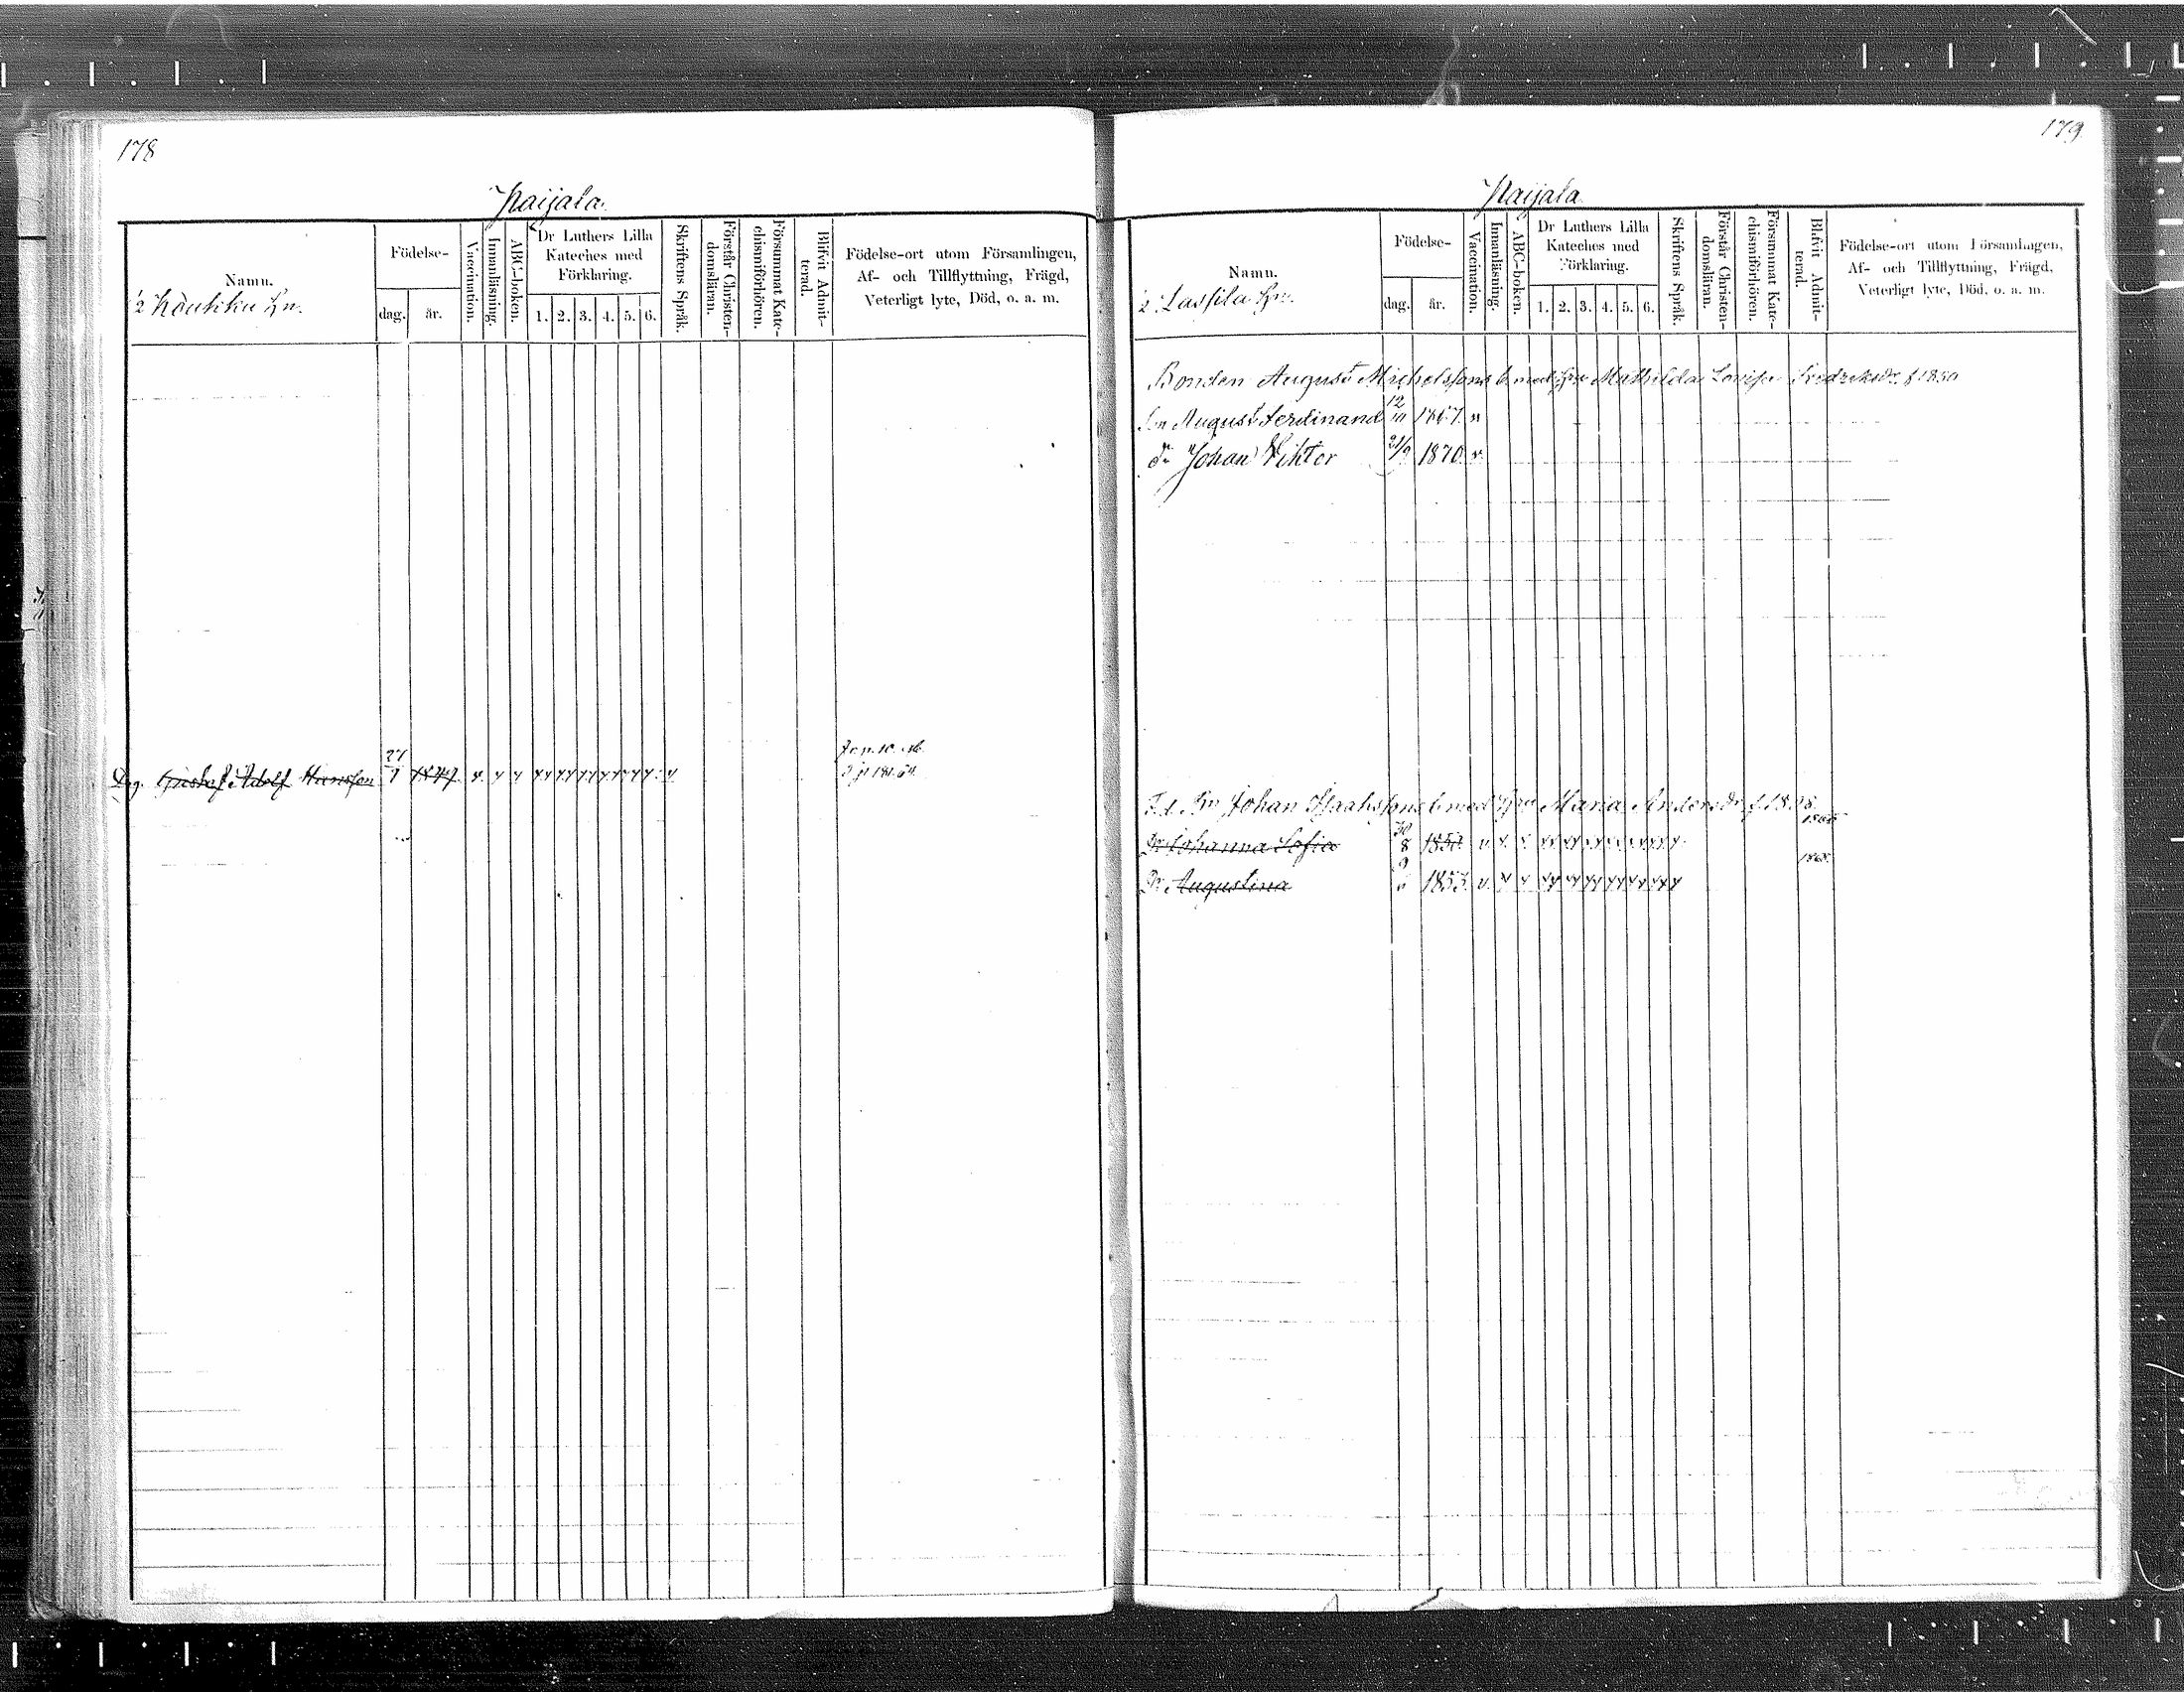 178
Kaijala
Namn.
Födelse-
dag.
år.
Vaccination.
Innanläsning.
ABC-boken.
Dr Luthers Lilla
Kateches med
Förklaring.
1. 2. 3. 4. 5. 6.
Skriftens Språk.
Förstår Christen-
domsläran.
Försummat Kate-
chismiförhören.
Blifvit Admit-
terad.
Födelse-ort utom Församlingen,
Af- och Tillflyttning, Frägd,
Veterligt lyte, Död, o. a. m.
Adolf Hansson 27
179
Kaijala
Namn.
2. Lassila
Födelse-
dag.
år.
Vaccination.
Innanläsning.
ABC-boken.
Dr Luthers Lilla
Kateches med
Förklaring.
1. 2. 3. 4. 5. 6.
Skriftens Språk.
Förstår Christen-
domsläran.
Försummat Kate-
chismiförhören.
Blifvit Admit-
terad.
Födelse-ort utom Församlingen,
Af- och Tillflyttning, Frägd,
Veterligt lyte, Död, o. a. m.
Bonden August Michelssons b. med Mathilda Lovisa f 1850
August Ferdinand 12 1867
Johan Viktor 21/9 1870
Johan Isaakssons b med Maria Andersdr
Johanna Sofia 30 8
Augustina 9 1853